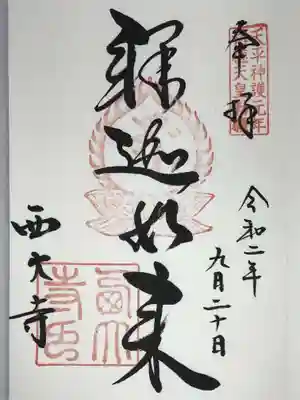 奉拝
天平神護元年
天皇
令和二年
九月二十日
釋迦如来
西大寺